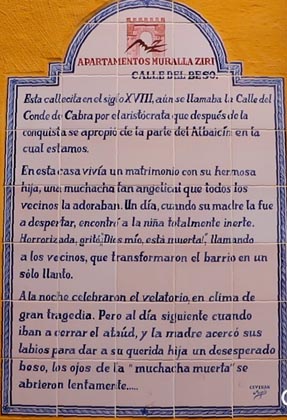 APARTAMENTOS MURALLA ZIRI
CALLE DEL BESO.
Esta callecita en el siglo XVIII, aún se llamaba la Calle del
Conde de Cabra por el aristócrata que después de la
conquista se apropio de la parte del Albaicín en ta
cual estamos.
En esta casa vivía un matrimonio con su hermosa
hija, una muchacha tan angelical que todos los
vecinos la adoraban. Un día, cuando su madre la fue
a despertar, encontró a la niña totalmente inerte.
Horrorizada, gritó, "Dios mío, está muerta!, llamando
a los vecinos, que transformaron el barrio en un
sólo llanto.
A la noche celebraron el velatorio, en clima de
gran tragedia. Pero al día siguiente cuando
iban a cerrar el ataúd, y la madre acercó sus
labios para dar a su querida hija un desesperado
beso, los ojos de la "muchacha muerta" se
abrieron lentamente.....